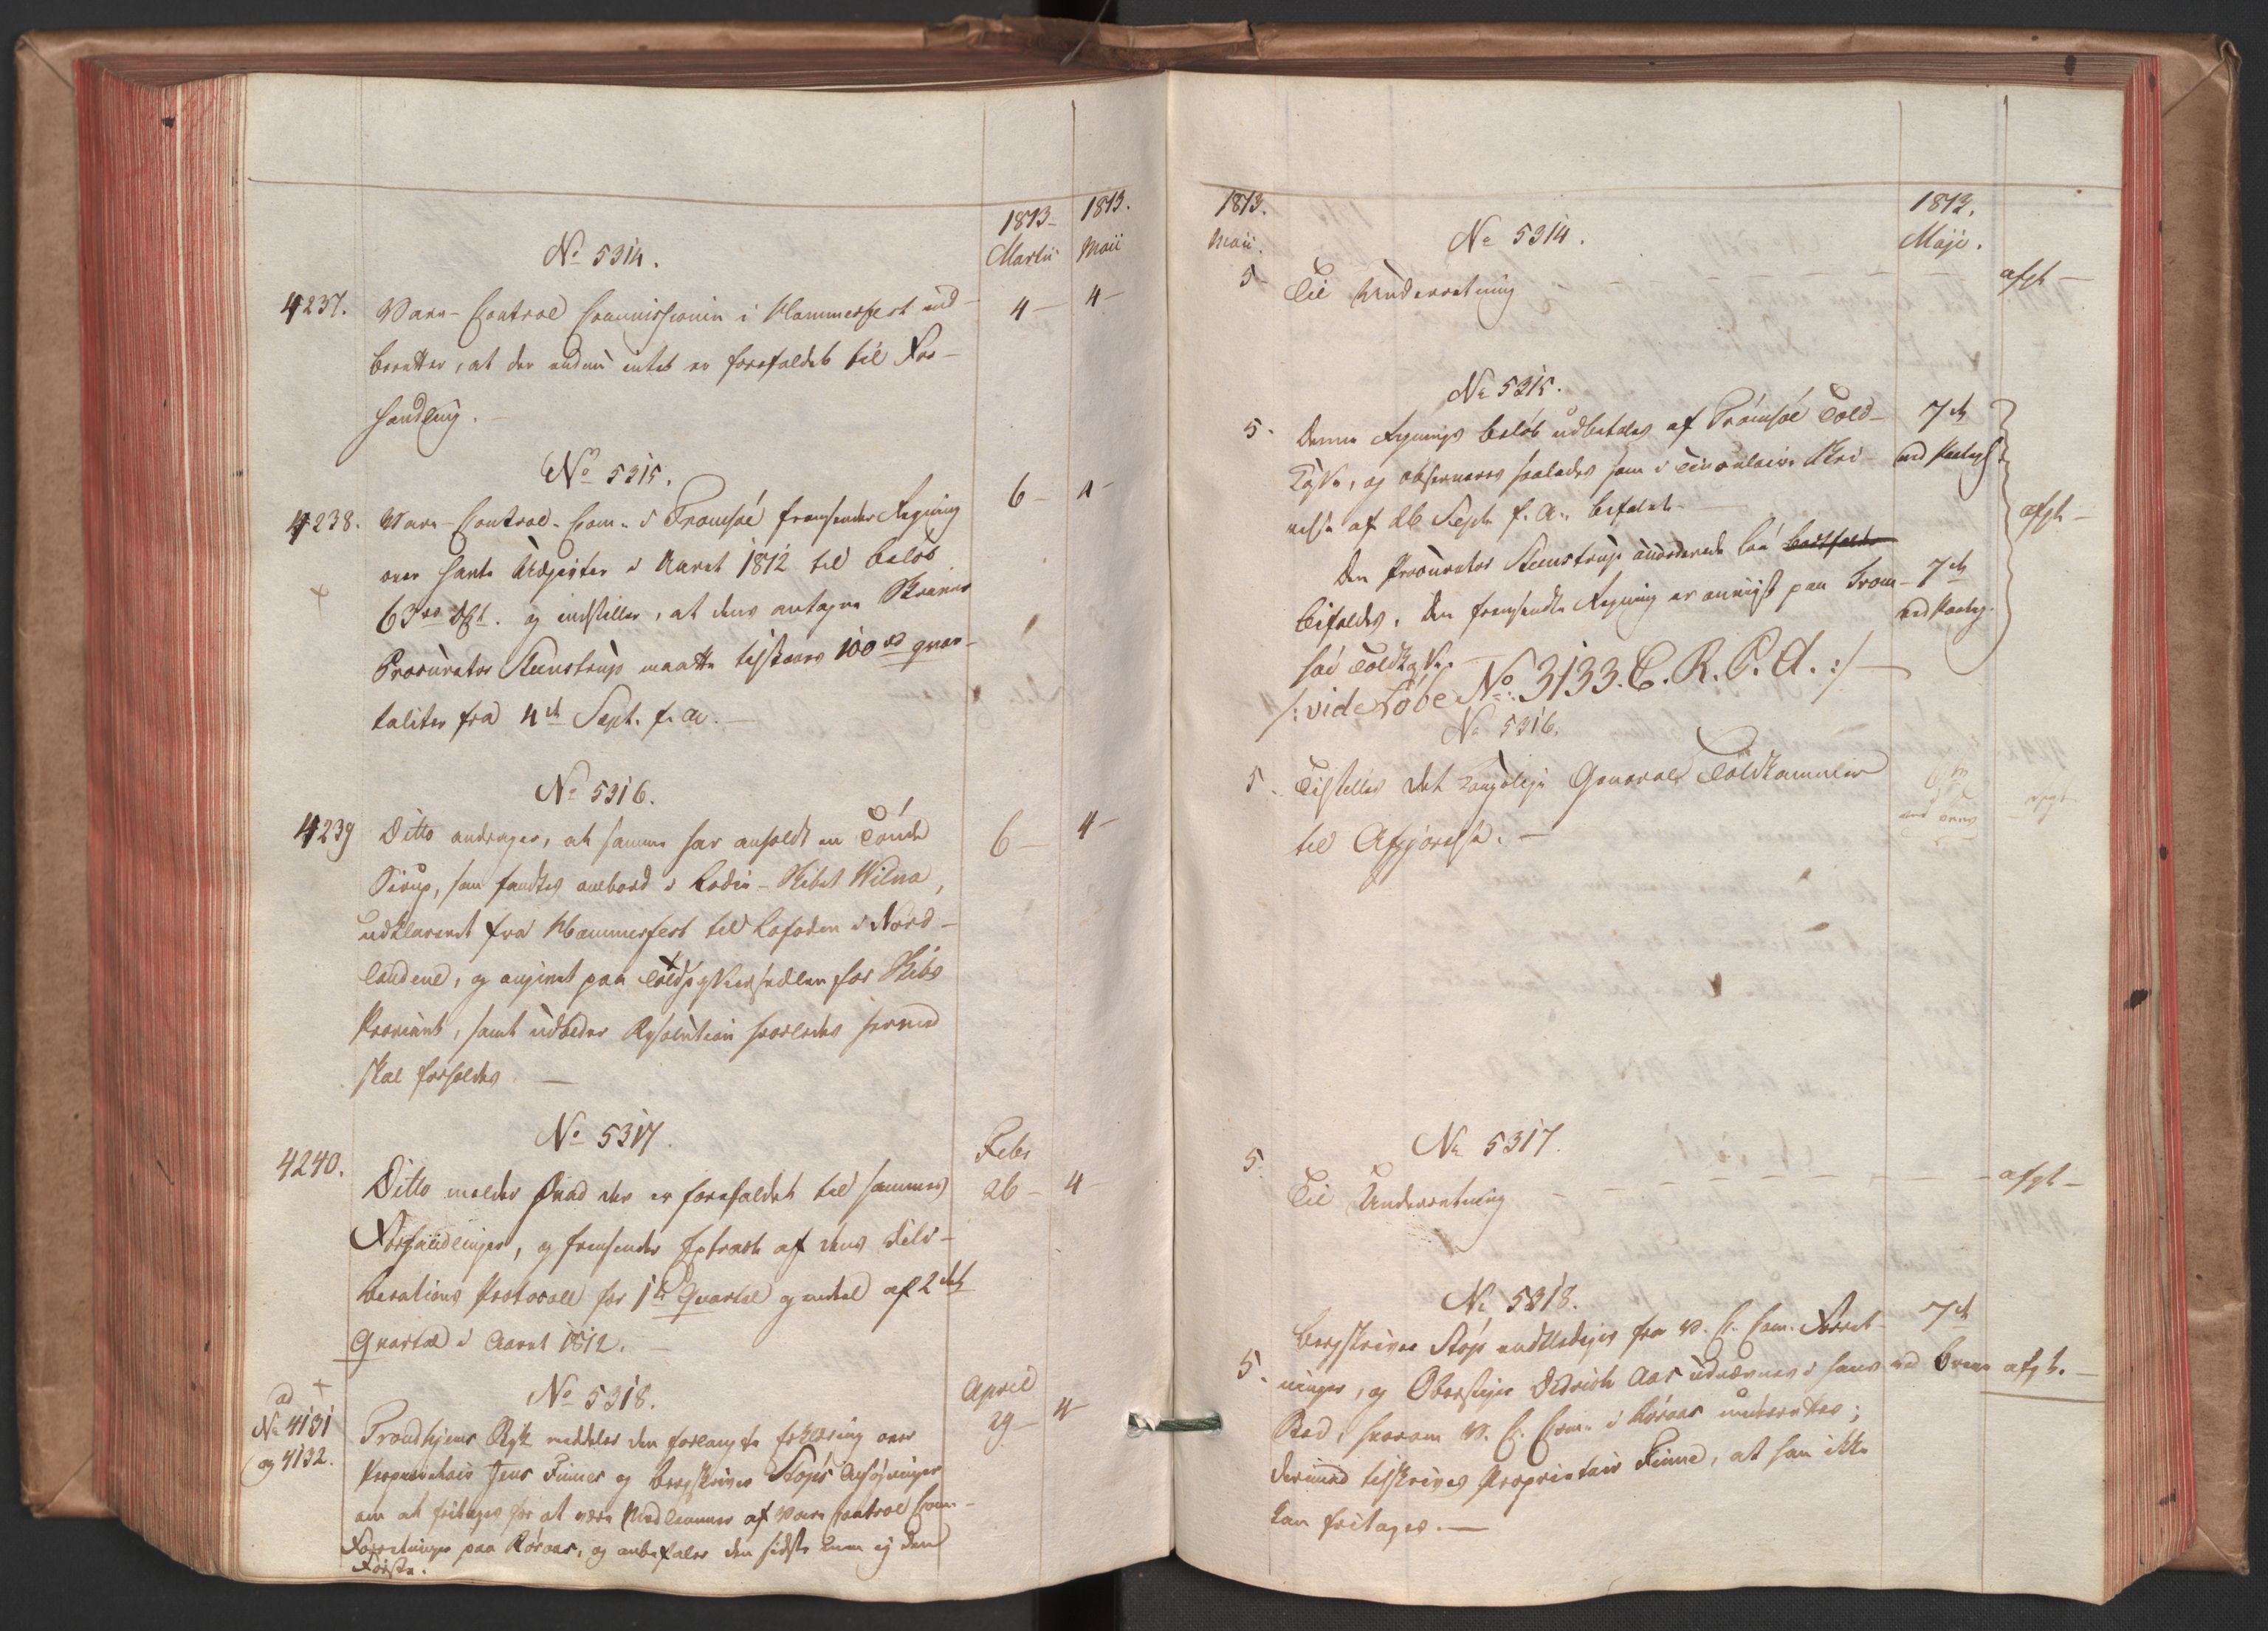 1813 1813.
Martii Maii
No 5314.
4237. Vare-Control Commissionen i Hammerfest ind- 4 - 4 -
beretter, at der endnu intet er forefaldet til For-
handling. -
No 5315.
4238. Vare-Control-Com. i Tromsøe fremsender Regning 6 - 4 -
over hafte Udgivter i Aaret 1812 til Beløb
og indstiller, at dens antagne Skriver
Procurator Steenstrup maatte tilstaaes 100 rd qvar-
taliter fra 4de Sept. f. A. -
No 5316.
4239 Ditto andrager, at samme har anholdt en Tønde 6 - 4 -
Sirup, som fandtes ombord i Lodie-Skibet Wilna,
udklareret fra Hammerfest til Lofoden i Nord-
landene, og angivet paa for Skibs
Proviant, samt udbeder Resolution hvorledes hermed
skal forholdes -
No 5317.
Febr
4240. Ditto melder hvad der er forefaldet til sammes 26 - 4 -
Forhandlinger, og fremsender Extract af dens Deli-
berations Protocoll for 1ste Qvartal og endeel af 2det
Qvartal i Aaret 1812. -
ad No 5318. April
No 4131 Trondhjems meddeler den forlangte Erklæring over 29 - 4
og 4132. Proprietair Jens Finnes og Bergskriver Støps Ansøgninger
om at fritages for at være Medlemmer af Vare Control Com-
Forretninger paa Røraas, og anbefaler den sidste men ej den
Første.
1813. 1813.
Maii. No 5314. Maji.
5 - Til Underretning - - - - - - afgt -
No 5315.
5. Denne Regnings Beløb udbetales af Tromsøe Told- 7de
Casse, og observeres saaledes som i Circulaire Skri-
velse af 26 Sept. f. A. befalet. - afgt -
Den Procurator Steenstrup
bifaldes. Den fremsendte Regning er anviist paa Trom- 7de
søe Toldcasse. -
/: vide Løbe No: 3133. C. R. P. A. :/ -
No 5316.
5. Tilstilles det Kongelige General Toldkammer
til Afgjørelse. -
No 5317.
5. Til Underretning - - - - - - afgt -
No 5318.
Bergskriver Støp entlediges fra V. C. Com. Forret- 7de
5. ninger, og Oberstiger Didrich Aas udnævnes i hans afgt. -
Sted, hvorom V. C. Com. i Røraas underrettes;
derimod tilskrives Proprietair Finne, at han ikke
kan fritages. -